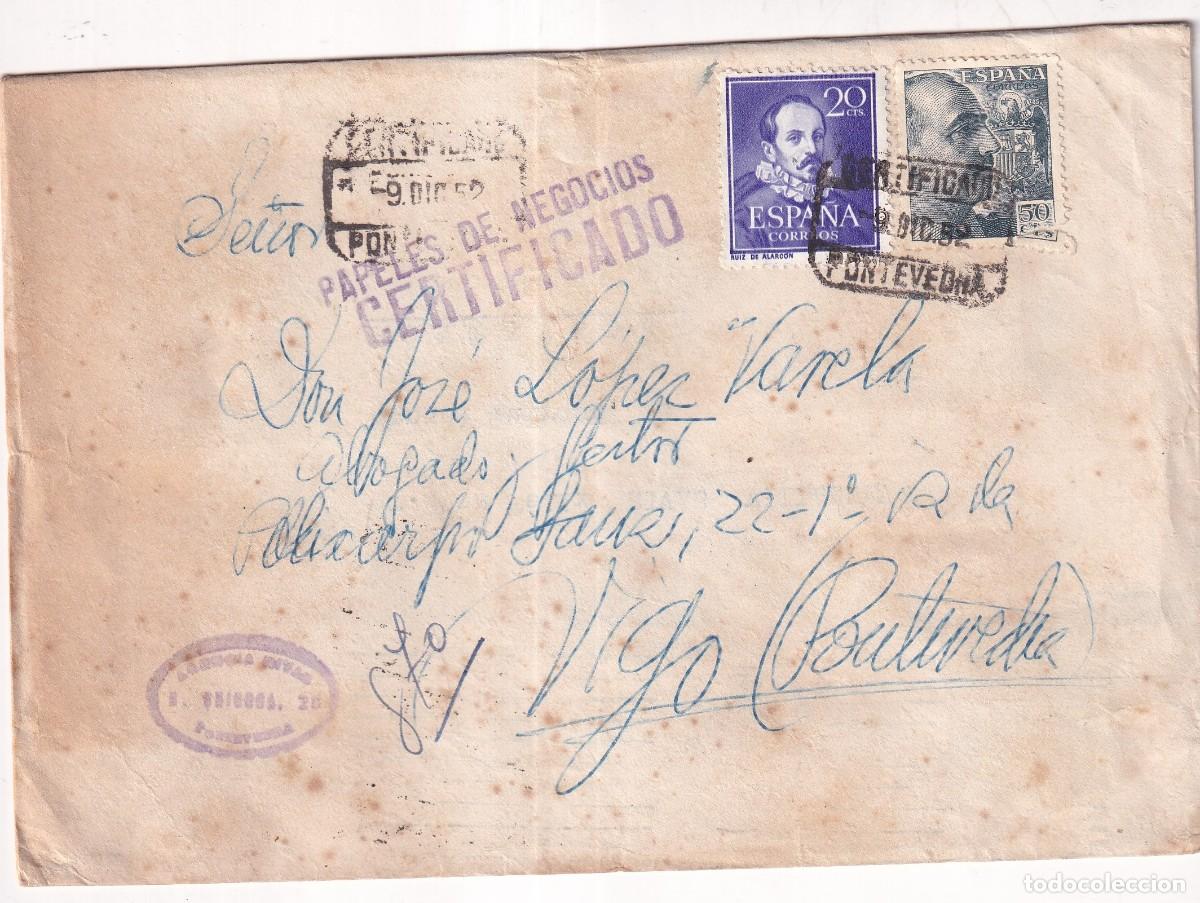 CERTIFICADO
9.DIC.52
PON
PAPELES DE NEGOCIOS
CERTIFICADO
20 CTS.
ESPAÑA
CORREOS
RUIZ DE ALARCÓN
ESPAÑA
CORREOS
50 CTS
CERTIFICADO
9.DIC.52
PONTEVEDRA
Señor
Don José López Varela
Abogado
Policarpo Sanz, 22-1º
Vigo (Pontevedra)
PONTEVEDRA
todocoleccion